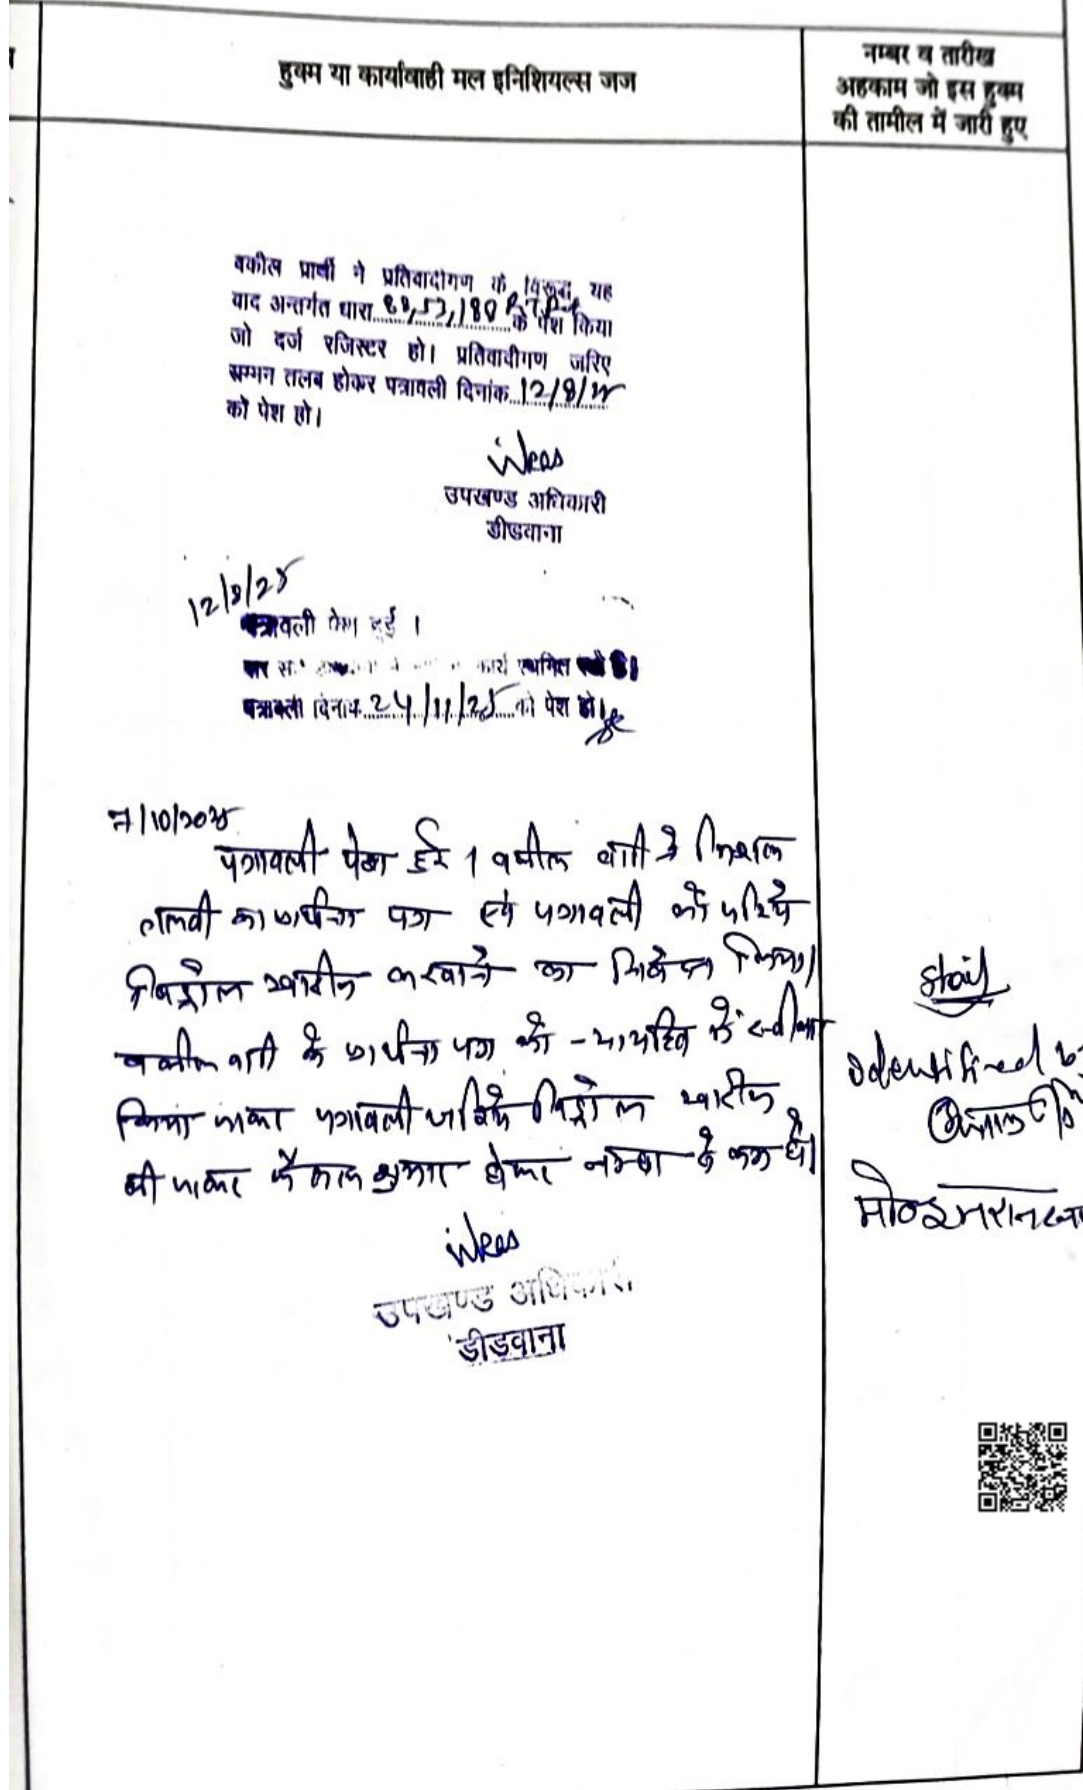 हुक्म या कार्यवाही मल इनिशियल्स जज
नम्बर व तारीख
अहकाम जो इस हुक्म
की तामील में जारी हुए
वकील प्रार्थी ने प्रतिवादीगण के विरूद्ध यह
वाद अन्तर्गत धारा 88,53,188 R.T.Act के पेश किया
जो दर्ज रजिस्टर हो। प्रतिवादीगण जरिए
सम्मन तलब होकर पत्रावली दिनांक 12/8/25
को पेश हो।
उपखण्ड अधिकारी
डीडवाना
12/8/25
पत्रावली पेश हुई ।
कार्य स्थगित रखे है।
पत्रावली दिनांक 24/11/25 को पेश हो।
7/10/2025
पत्रावली पेश हुई । वकील वादी ने मिशल
तलबी का प्रार्थना पत्र एवं पत्रावली को जरिये
विड्रोल खारीज करवाने का निवेदन किया।
वकील वादी के प्रार्थना पत्र को न्यायहित में स्वीकार
किया जाकर पत्रावली जरिये विड्रोल खारीज
की जाकर फैसल शुमार होकर नम्बर से कम हो।
उपखण्ड अधिकारी
डीडवाना
Identified by